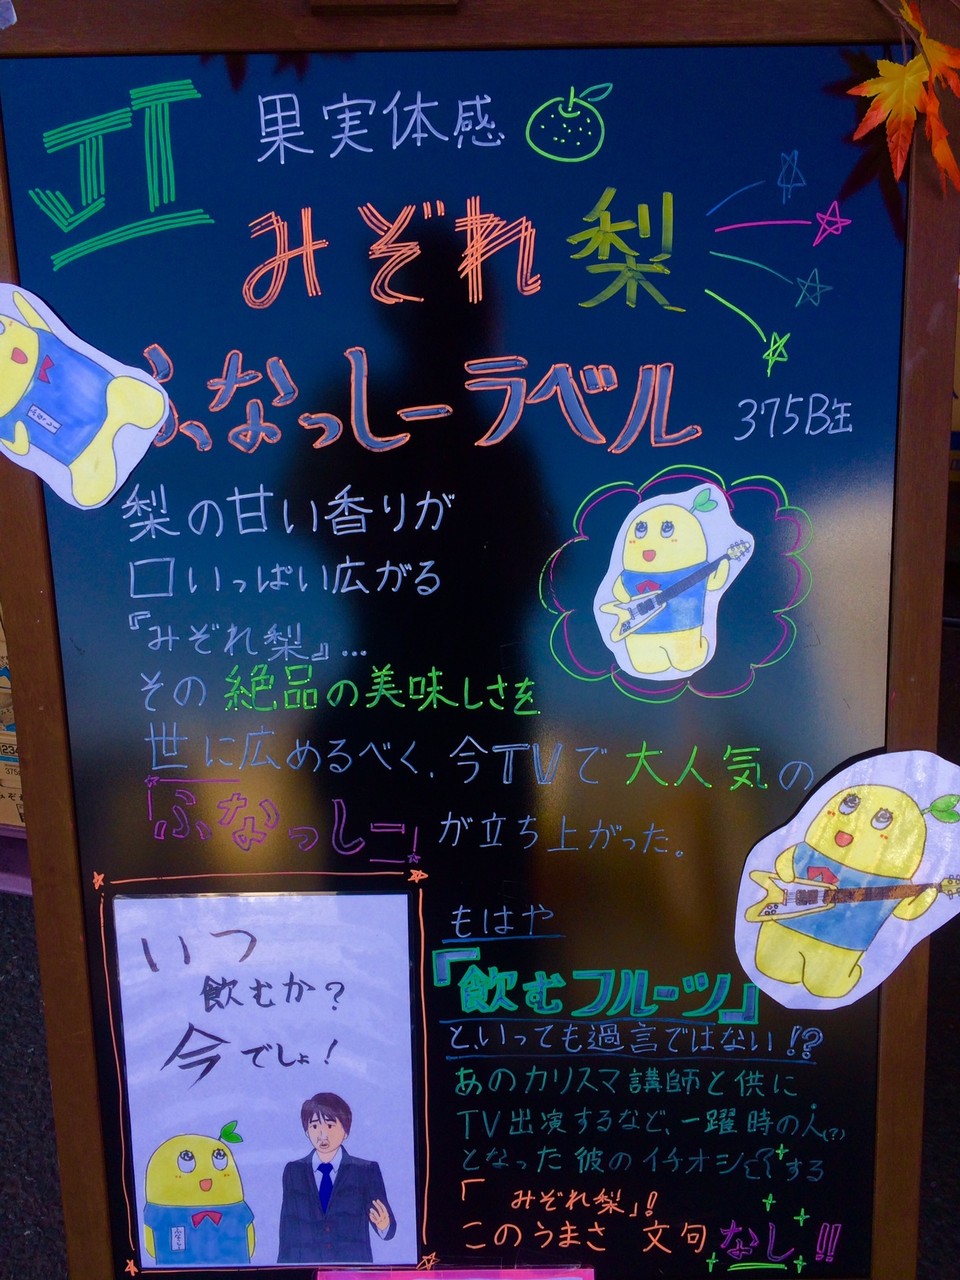 JT
果実体感
みぞれ梨
ふなっしーラベル 375B缶
梨の甘い香りが
口いっぱい広がる
『みぞれ梨』…
その絶品の美味しさを
世に広めるべく、今TVで大人気の
「ふなっしー」が立ち上がった。
いつ
飲むか?
今でしょ!
もはや
『飲むフルーツ』
といっても過言ではない!?
あのカリスマ講師と供に
TV出演するなど、一躍時の人(?)
となった彼のイチオシする
「みぞれ梨」!
このうまさ 文句なし!!